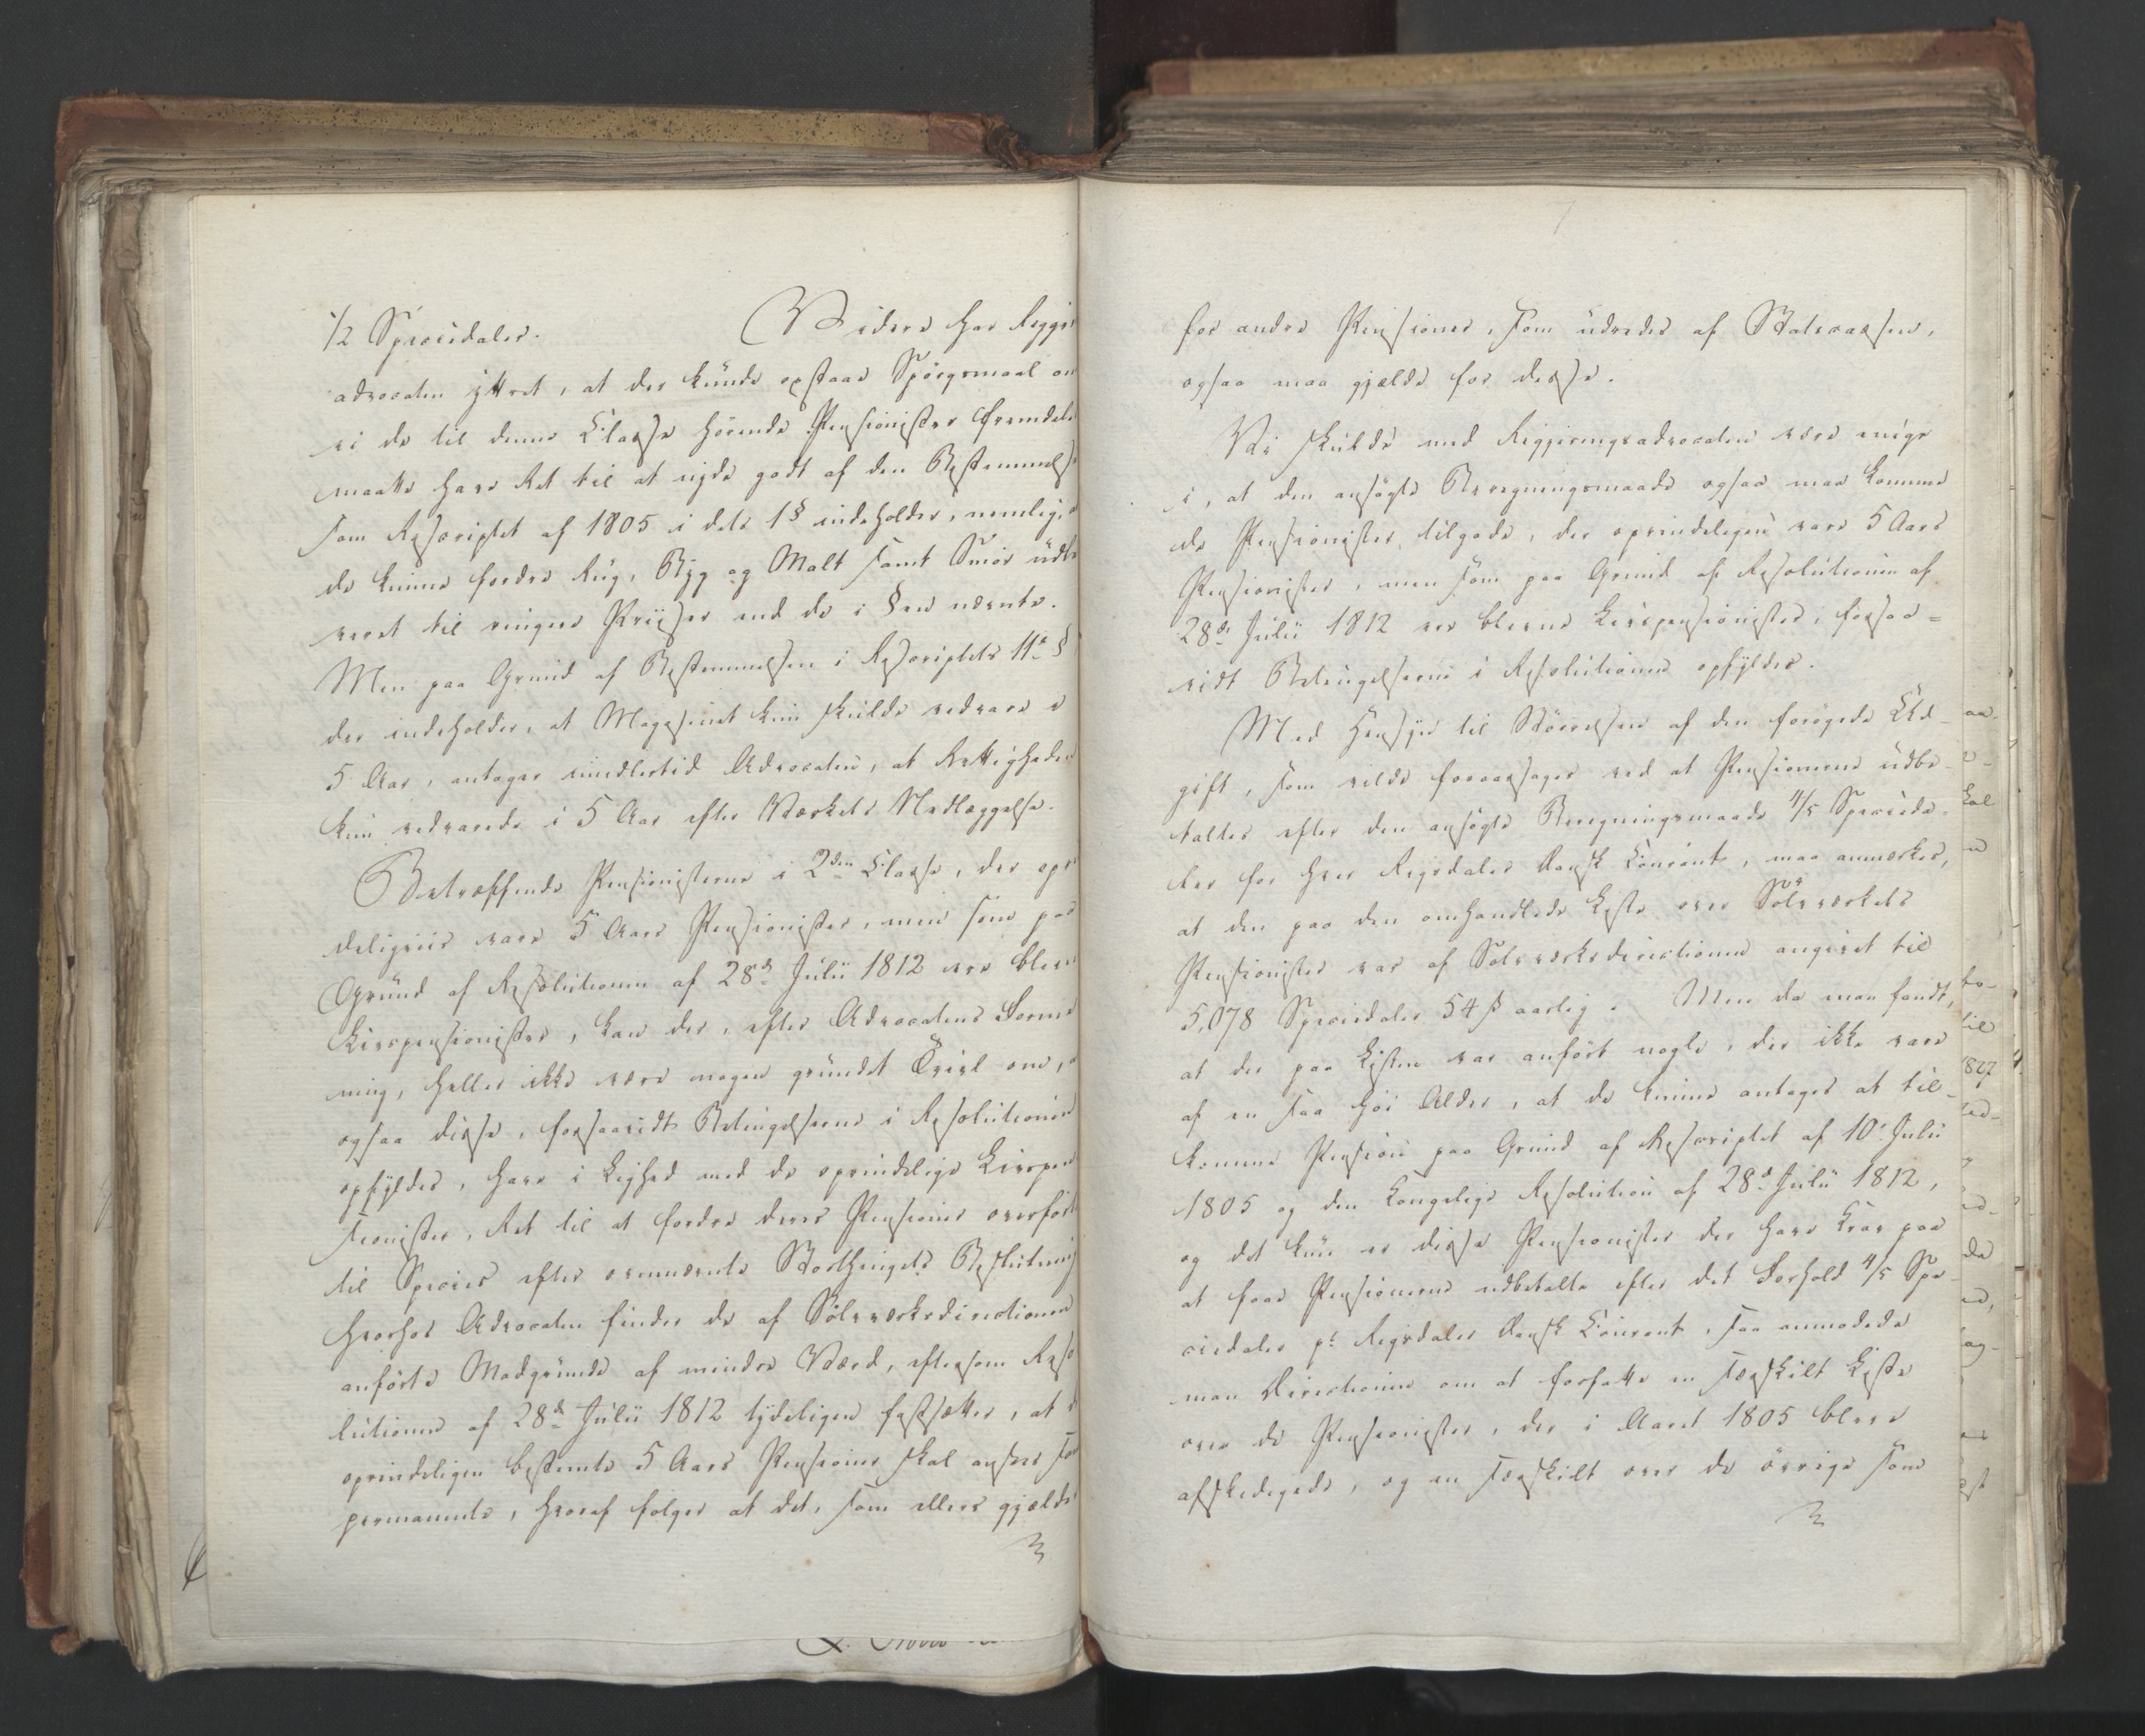 1/2 Speciedaler. Videre har Reggje
advocaten yttret, at der kunde opstaae Spörgsmaal om
vi de til denne Classe hörende Pensionister fremdeles
maatte have Ret til at nyde godt af den Bestemmelse
som Rescriptet af 1805 i dets 1§ indeholder, nemlig, a
de kunne fordre Rug, Byg og Malt samt Smör udle
veret til ringere Priiser end de i §en nævnte.
Men paa Grund af Bestemmelsen i Rescriptets 11te §
der indeholder, at Magasinet kun skulde vedvare i
5 Aar, antager imidlertid Advocaten, at Rettigheden
kun vedvarede i 5 Aar efter Værkets Nedlæggelse.
Betræffende Pensionisterne i 2den Classe, der opr
deligviis vare 5 Aars Pensionister, men som paa
Grund af Resolutionen af 28de Julii 1812 ere bleve
Livspensionister, kan der, efter Advocatens Forme
ning, heller ikke være nogen grundet Tvivl om, a
ogsaa disse, forsaavidt Betingelserne i Resolutionen
opfyldes, have i Liighed med de oprindelige Livspen
sionister, Ret til at fordre deres Pensioner overfört
til Species efter ovennævnte Storthingets Beslutning
hvorhos Advocaten finder de af Sölvværksdirectionen
anförte Modgrunde af mindre Værd, eftersom Reso
lutionen af 28de Julii 1812 tydeligen fastsætter, at d
oprindeligen bestemte 5 Aars Pensioner skal ansees som
permanente, hvoraf fölger at det, som ellers gjælder
for andre Pensioner, som udredes af Statscassen,
ogsaa maa gjælde for disse.
Vi skulde med Regjeringsadvocaten være enige
i, at den ansögte Beregningsmaade ogsaa maa komme
de Pensionister tilgode, der oprindeligen vare 5 Aars
Pensionister, men som paa Grund af Resolutionen af
28de Julii 1812 ere blevne Livspensionister, forsaa=
vidt Betingelserne i Resolutionen opfyldes.
Med Hensyn til Störrelsen af den forögede Ud-
gift, som vilde foraarsages ved at Pensionerne udbe-
taltes efter den ansögte Beregningsmaade 4/5 Speciedа-
ler for hver Rigsdaler Dansk Courant, maa anmærkes,
at den paa den omhandlede Liste over Sölvværkets
Pensionister var af Sölvværksdirectionen angivet til
5,078 Speciedaler 54 ß aarlig. Men da man fandt,
at der paa Listen var anfört nogle, der ikke vare
af en saa höi Alder, at de kunne antages at til-
komme Pension paa Grund af Rescriptet af 10de Julii
1805 og den Kongelige Resolution af 28de Julii 1812,
og det kun er disse Pensionister der have Krav paa
at faae Pensionerne udbetalte efter det Forhold 4/5 Spe-
ciedaler pr Rigsdaler Dansk Courant, saa anmodede
man Directionen om at forfatte en særskilt Liste
over de Pensionister, der i Aaret 1805 bleve
afskedigede, og en særskilt over de övrige som